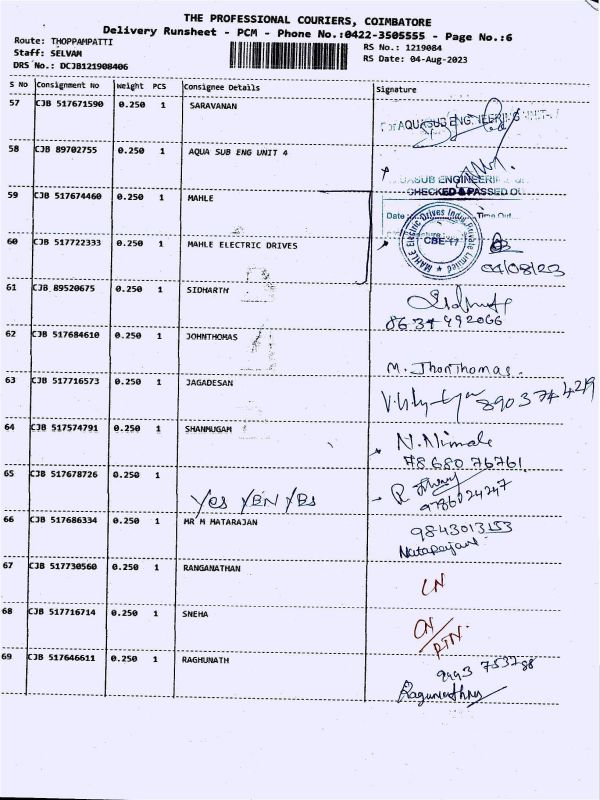 THE PROFESSIONAL COURIERS, COIMBATORE
Delivery Runsheet - PCM - Phone No.:0422-3505555 - Page No.:6
Route: THOPPAMPATTI
Staff: SELVAM
DRS No.: DCJB121908406
RS No.: 1219084
RS Date: 04-Aug-2023
S No Consignment No Weight PCS Consignee Details Signature
57 CJB 517671590 0.250 1 SARAVANAN
AQUASUB ENGINEERING UNIT-
58 CJB 89702755 0.250 1 AQUA SUB ENG UNIT 4
AQUASUB ENGINEERING
CHECKED & PASSED OU
59 CJB 517674460 0.250 1 MAHLE
Date Time Out
MAHLE Electric Drives India Private Limited
CBE-17
60 CJB 517722333 0.250 1 MAHLE ELECTRIC DRIVES
04/08/23
61 CJB 89520675 0.250 1 SIDHARTH
8637492066
62 CJB 517684610 0.250 1 JOHNTHOMAS
M. JhonThomas.
63 CJB 517716573 0.250 1 JAGADESAN
8903744219
64 CJB 517574791 0.250 1 SHANMUGAM
N. Nimale
78680 76761
65 CJB 517678726 0.250 1
Yes YEN YBS
9786224247
66 CJB 517686334 0.250 1 MR M MATARAJAN
9843013153
Natarajan
67 CJB 517730560 0.250 1 RANGANATHAN
CN
68 CJB 517716714 0.250 1 SNEHA
CN/RTN.
69 CJB 517646611 0.250 1 RAGHUNATH
9443 753288